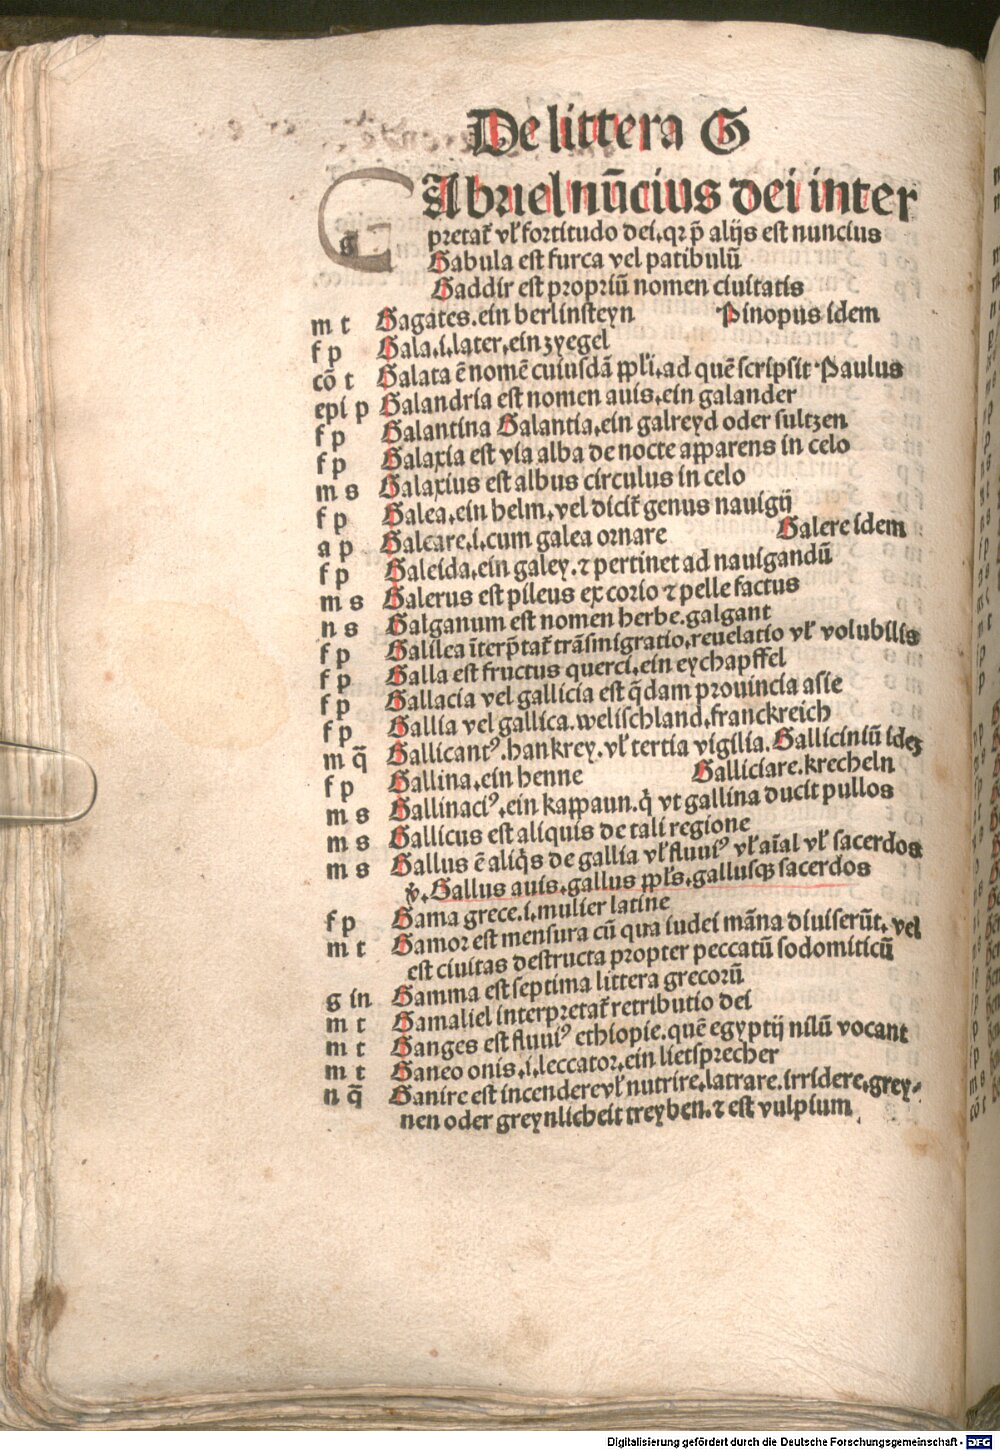 De littera G
GAbriel nūcius dei inter
pretat᷑ vl̕ fortitudo dei, qꝛ p̄ alijs est nuncius
Gabula est furca vel patibulū
Gaddir est propriū nomen ciuitatis
m t Gagates.ein berlinsteyn Pinopus idem
f p Gala.i.later.ein zyegel
cō t Galata ē nomē cuiusdā ppl̕i.ad quē scripsit Paulus
epi p Galandria est nomen auis.ein galander
f p Galantina Galantia.ein galreyd oder sultzen
f p Galaxia est via alba de nocte apparens in celo
m s Galaxius est albus circulus in celo
f p Galea.ein helm.vel dicit᷑ genus nauigij
a p Galeare.i.cum galea ornare Galere idem
f p Galeida.ein galey.⁊ pertinet ad nauigandū
m s Galerus est pileus ex corio ⁊ pelle factus
n s Galganum est nomen herbe.galgant
f p Galilea īterp̄tat᷑ trāsmigratio.reuelatio vl̕ volubilis
f p Galla est fructus querci.ein eychapffel
f p Gallacia vel gallicia est q̄dam prouincia asie
f p Gallia vel gallica.welischland.franckreich
m q̄ Gallicantꝰ.hankrey.vl̕ tertia vigilia.Galliciniū idez
f p Gallina.ein henne Galliciare.krecheln
m s Gallinaciꝰ.ein kappaun.q̇ vt gallina ducit pullos
m s Gallicus est aliquis de tali regione
m s Gallus ē aliq̇s de gallia vl̕ fluuiꝰ vl̕ aīal vl̕ sacerdos
v̓.Gallus auis.gallus ppl̕s.gallusqꝫ sacerdos
f p Gama grece.i.mulier latine
m t Gamor est mensura cū qua iudei māna diuiserūt.vel
est ciuitas destructa propter peccatū sodomiticū
g in Gamma est septima littera grecorū
m t Gamaliel interpretat᷑ retributio dei
m t Ganges est fluuiꝰ ethiopie.quē egyptij nilū vocant
m t Ganeo onis.i.leccator.ein lietsprecher
n q̄ Ganire est incendere vl̕ nutrire.latrare.irridere.grey-
nen oder greynlicheit treyben.⁊ est vulpium
Digitalisierung gefördert durch die Deutsche Forschungsgemeinschaft - DFG